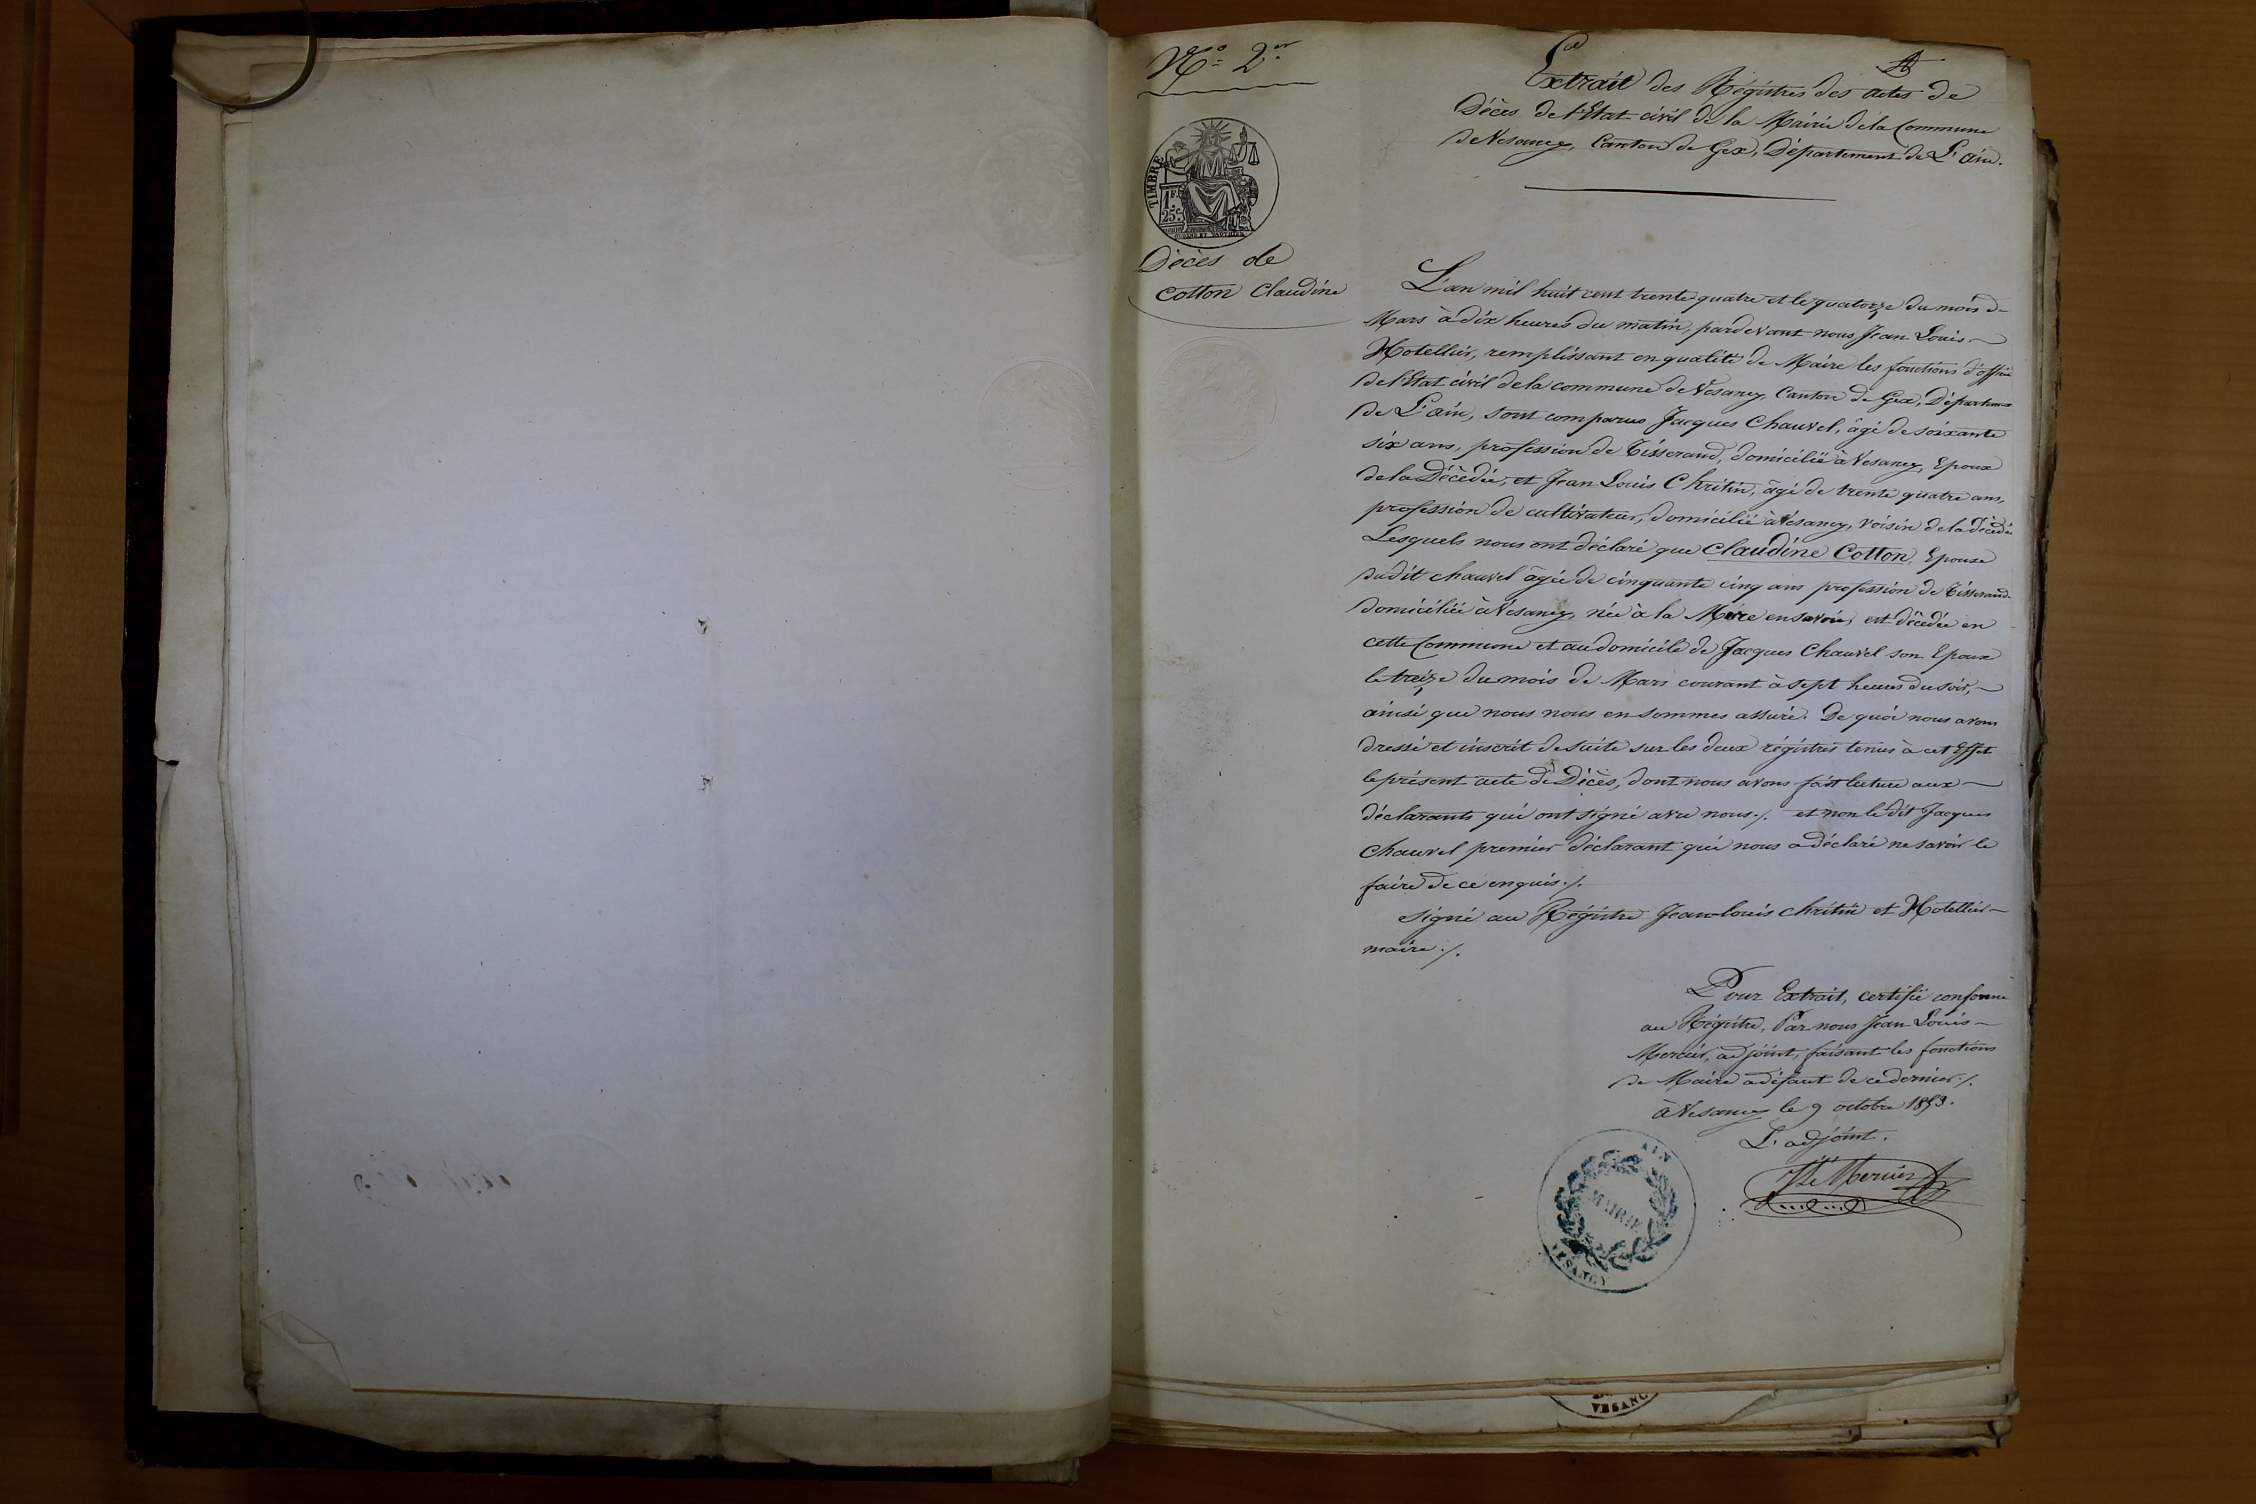 N.o 2.er
TIMBRE
1 F.
25 c.
Décès de
Cotton Claudine
Extrait des Régistres des actes de
Décès de l'Etat civil de la Mairie de la Commune
de Vesancy, Canton de Gex, Département de L'ain.
L'an mil huit cent trente quatre et le quatorze du mois de
Mars à dix heures du matin, pardevant nous Jean Louis
Hotellier, remplissant en qualité de Maire les fonctions d'officier
de l'Etat civil de la commune de Vesancy, Canton de Gex, Département
de L'ain, sont comparus Jacques Chauvel, âgé de soixante
six ans, profession de Tisserand, domicilié à Vesancy, Epoux
de la Décédée, et Jean Louis Chritin, âgé de trente quatre ans,
profession de cultivateur, domicilié à Vesancy, voisin de la décédée
Lesquels nous ont déclaré que Claudine Cotton, Epouse
dudit chauvel âgée de cinquante cinq ans profession de Tisserand
domiciliée à Vesancy, née à la Mure en savoie, est décédée en
cette Commune et au domicile de Jacques Chauvel son Epoux
le treize du mois de Mars courant à sept heures du soir,
ainsi que nous nous en sommes assuré. De quoi nous avons
dressé et inscrit de suite sur les deux régistres tenus à cet Effet
le présent acte de Décès, dont nous avons fait lecture aux
déclarants qui ont signé avec nous ./. et non le dit Jacques
Chauvel premier déclarant qui nous a déclaré ne savoir le
faire de ce enquis ./.
Signé au Régistre Jean-louis chritin et Hotellier
maire ./.
Pour Extrait, certifié conforme
au Régistre, Par nous Jean Louis
Mercier, adjoint, faisant les fonctions
de Maire à défaut de ce dernier ./.
à Vesancy le 9 octobre 1853.
L'adjoint.
JLs Mercier
AIN
MAIRIE
VESANCY
VESANC